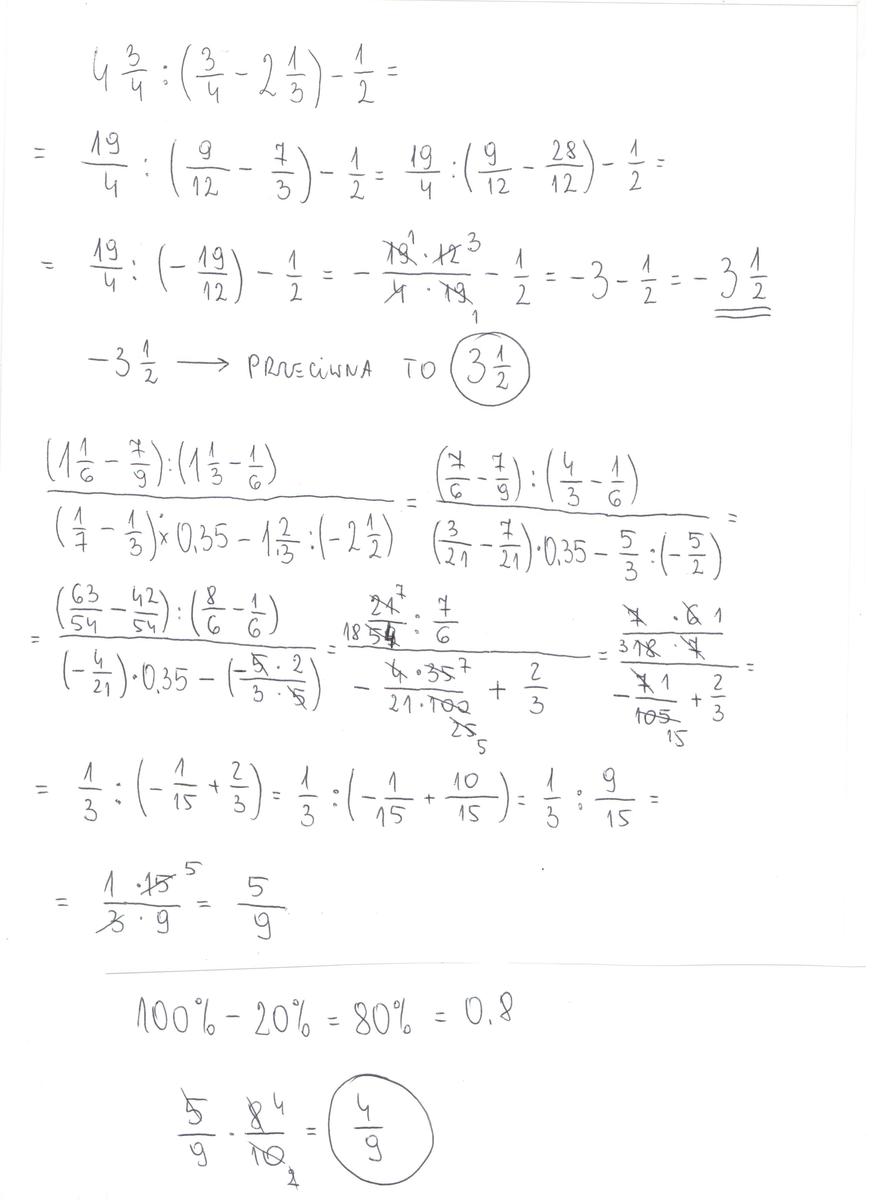 4 3/4 : (3/4 - 2 1/3) - 1/2 =
= 19/4 : (9/12 - 7/3) - 1/2 = 19/4 : (9/12 - 28/12) - 1/2 =
= 19/4 : (-19/12) - 1/2 = - (19 1 · 12 3)/(4 · 19 1) - 1/2 = -3 - 1/2 = -3 1/2
-3 1/2 → PRZECIWNA TO 3 1/2
((1 1/6 - 7/9) : (1 1/3 - 1/6))/((1/7 - 1/3) × 0,35 - 1 2/3 : (-2 1/2)) = ((7/6 - 7/9) : (4/3 - 1/6))/((3/21 - 7/21) · 0,35 - 5/3 : (-5/2)) =
= ((63/54 - 42/54) : (8/6 - 1/6))/((-4/21) · 0,35 - (-5 · 2)/(3 · 5)) = (21 7/18 54 : 7/6)/(- (4 · 35 7)/(21 · 100 25 5) + 2/3) = ((7 · 6 1)/(3 18 · 7))/(- 7 1/105 15 + 2/3) =
= 1/3 : (-1/15 + 2/3) = 1/3 : (-1/15 + 10/15) = 1/3 : 9/15 =
= (1 · 15 5)/(3 · 9) = 5/9
100% - 20% = 80% = 0,8
5/9 · 8 4/10 2 = 4/9